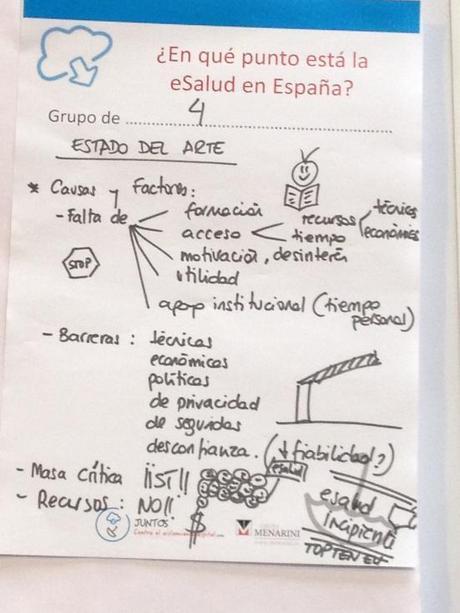 ¿En qué punto está la
eSalud en España?
Grupo de 4
ESTADO DEL ARTE
* Causas y Factores:
- Falta de formación
acceso recursos técnicos económicos
tiempo
motivación, desinterés
utilidad
apoyo institucional (tiempo personal)
STOP
- Barreras: técnicas
económicas
políticas
de privacidad
de seguridad
desconfianza. (↓ fiabilidad?)
- Masa Crítica ¡¡SI!! esalud
- Recursos: NO!!
esalud
incipiente
TOP TEN EU
JUNTOS
Contra el aislamiento digital.com
MENARINI